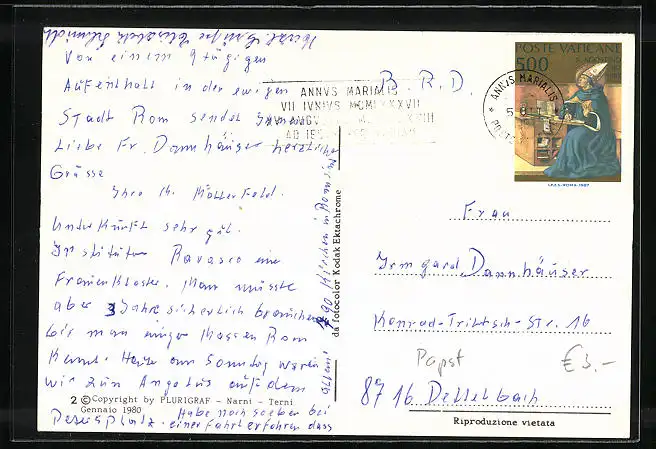 Von einem 9 tägigen
Aufenthalt in der ewigen
Stadt Rom sendet Ihnen
Liebe Fr. Dannhäuser herzliche
Grüsse
Ihre M. Kolterfeld.
Unterkunft sehr gut.
Institutu Ravasco ein
Frauenkloster. Man müsste
aber 3 Jahre sicherlich brauchen
bis man einigermassen Rom
kennt. Heute am Sonntag waren
wir zum Angelus auf dem
Petersplatz. Habe noch soeben bei
einer Fahrt erfahren dass
Kirchen in Rom
allein
Herzl. Grüße Elisabeth Schmidt
2 © Copyright by PLURIGRAF - Narni - Terni
Gennaio 1980
da fotocolor Kodak Ektachrome
B. R. D.
ANNVS MARIALIS
VII IVNIVS MCMLXXXVII
POSTE VATICANE
500
ANNVS MARIALIS
I.P.Z.S.-ROMA-1987
Frau
Irmgard Dannhäuser
Konrad-Tritsch-Str. 16
Papst
€ 3.-
8716 Dettelbach
Riproduzione vietata